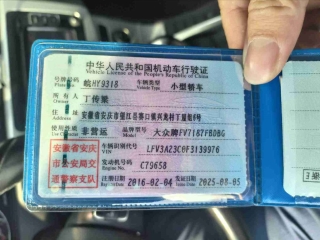 中华人民共和国机动车行驶证
Vehicle License of the People's Republic of China
号牌号码 皖HY9318 车辆类型 小型轿车
Plate No. Vehicle Type
所有人 丁传梁
Owner
住址 安徽省安庆市望江县
Address
使用性质 非营运 品牌型号 大众牌FV7187FBDBG
Use Character Model
安徽省安庆市公安局交通警察支队
车辆识别代号 LFV3A23C0F3139976
VIN
发动机号码 C79658
Engine No.
注册日期 2016-02-04 发证日期 2025-08-05